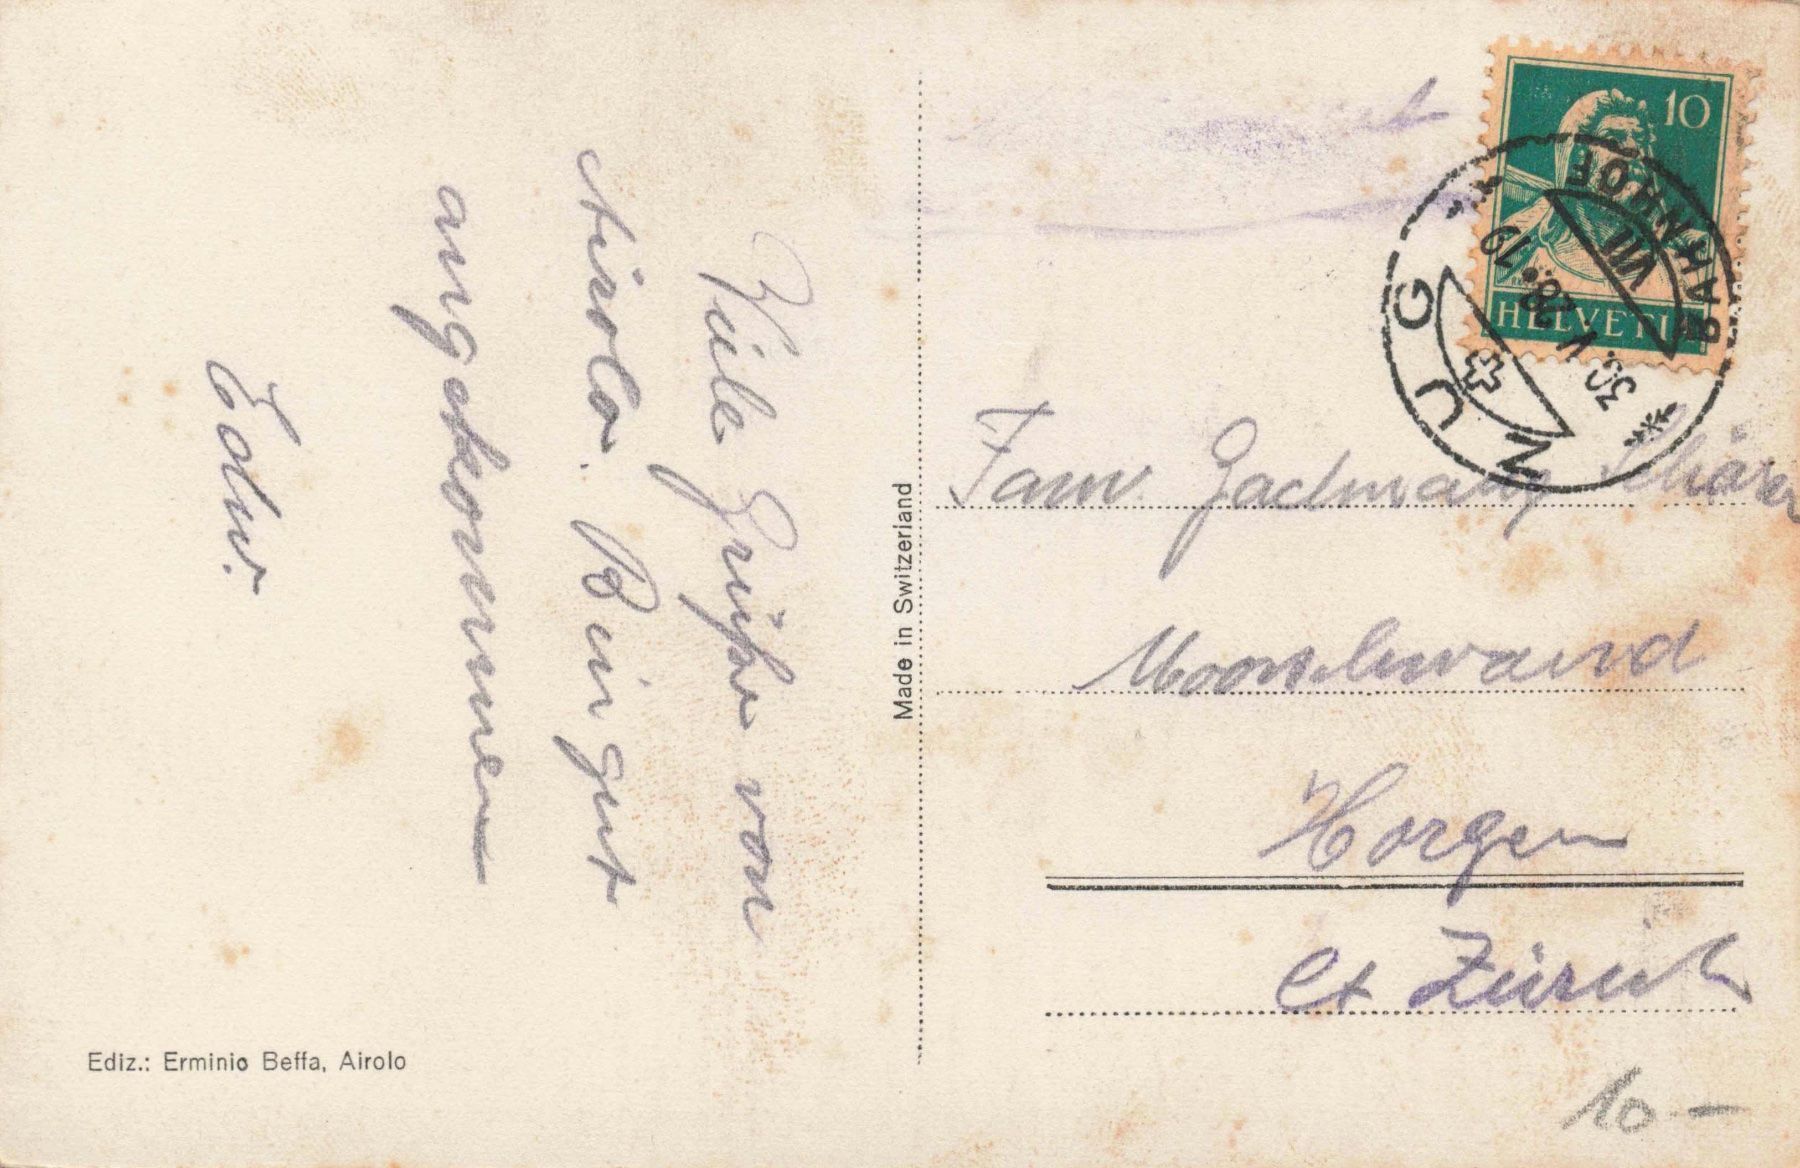 Viele Grüße von
Airolo. Bin gut
angekommen
Edw.
Ediz.: Erminio Beffa, Airolo
Made in Switzerland
10
HELVETIA
ZUG
BAHNHOF
30. V. 28. 19
VIII
Fam. Gachnang Schärer
Moorschwand
Horgen
Ct Zürich
10 –